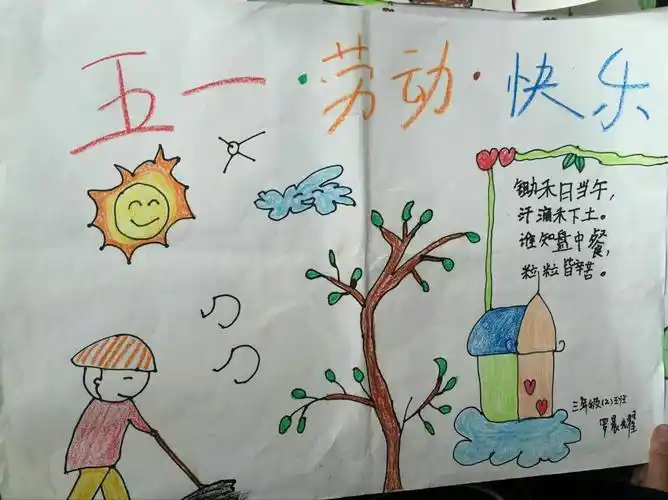 五一·劳动·快乐
锄禾日当午,
汗滴禾下土。
谁知盘中餐,
粒粒皆辛苦。
三年级(2)班
罗晨耀